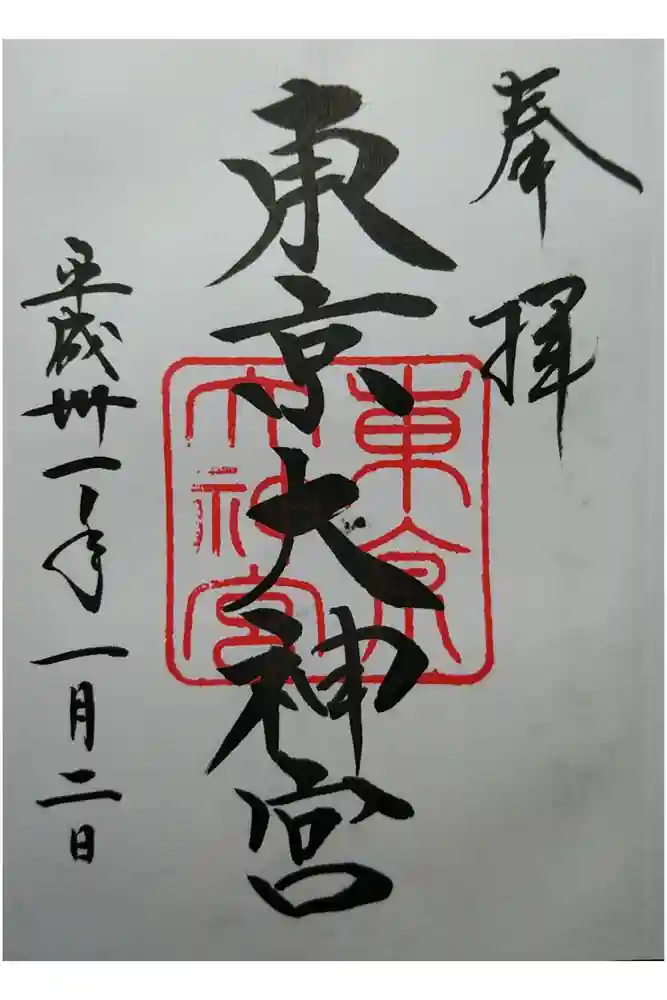 奉拝
東京大神宮
東京
大神宮
平成卅一年一月二日